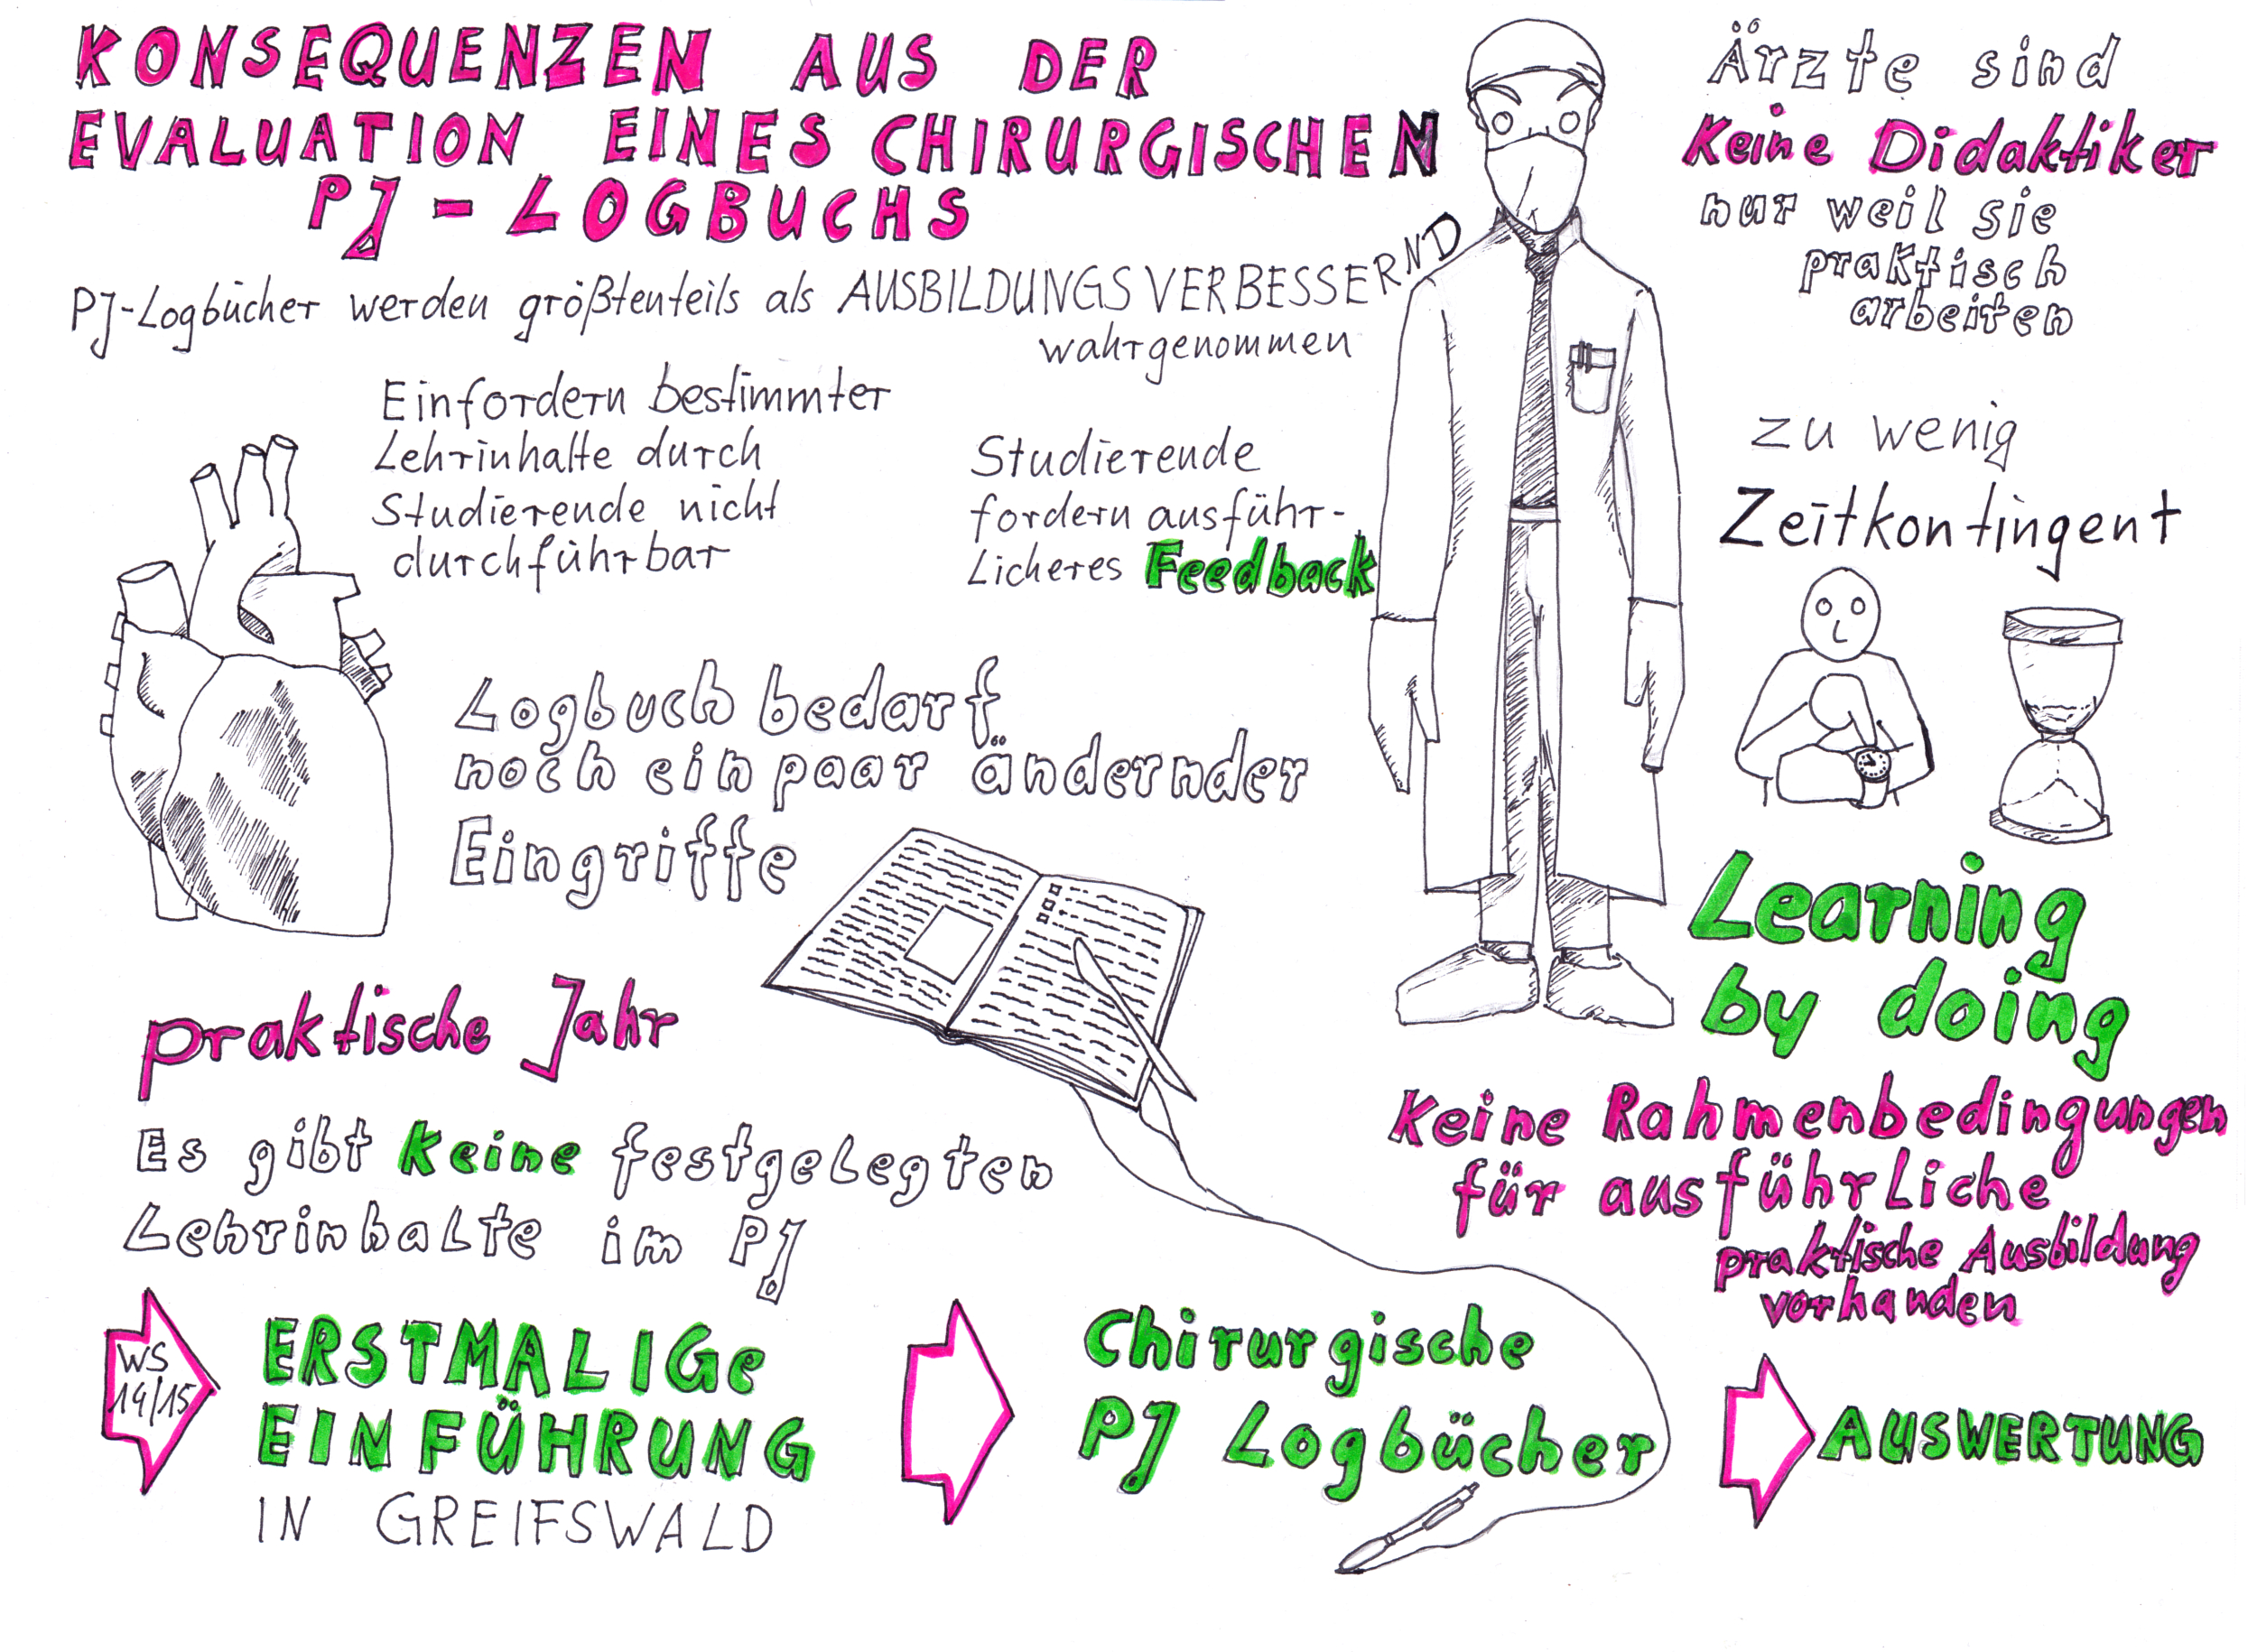 KONSEQUENZEN AUS DER
EVALUATION EINES CHIRURGISCHEN
PJ-LOGBUCHS
PJ-Logbücher werden größtenteils als AUSBILDUNGSVERBESSERND
wahrgenommen
Einfordern bestimmter
Lehrinhalte durch
Studierende nicht
durchführbar
Studierende
fordern ausführ-
licheres Feedback
Logbuch bedarf
noch ein paar ändernder
Eingriffe
praktische Jahr
Es gibt keine festgelegten
Lehrinhalte im PJ
Ärzte sind
Keine Didaktiker
nur weil sie
praktisch
arbeiten
zu wenig
Zeitkontingent
Learning
by doing
Keine Rahmenbedingungen
für ausführliche
praktische Ausbildung
vorhanden
WS
14/15
ERSTMALIGE
EINFÜHRUNG
IN GREIFSWALD
Chirurgische
PJ Logbücher
AUSWERTUNG